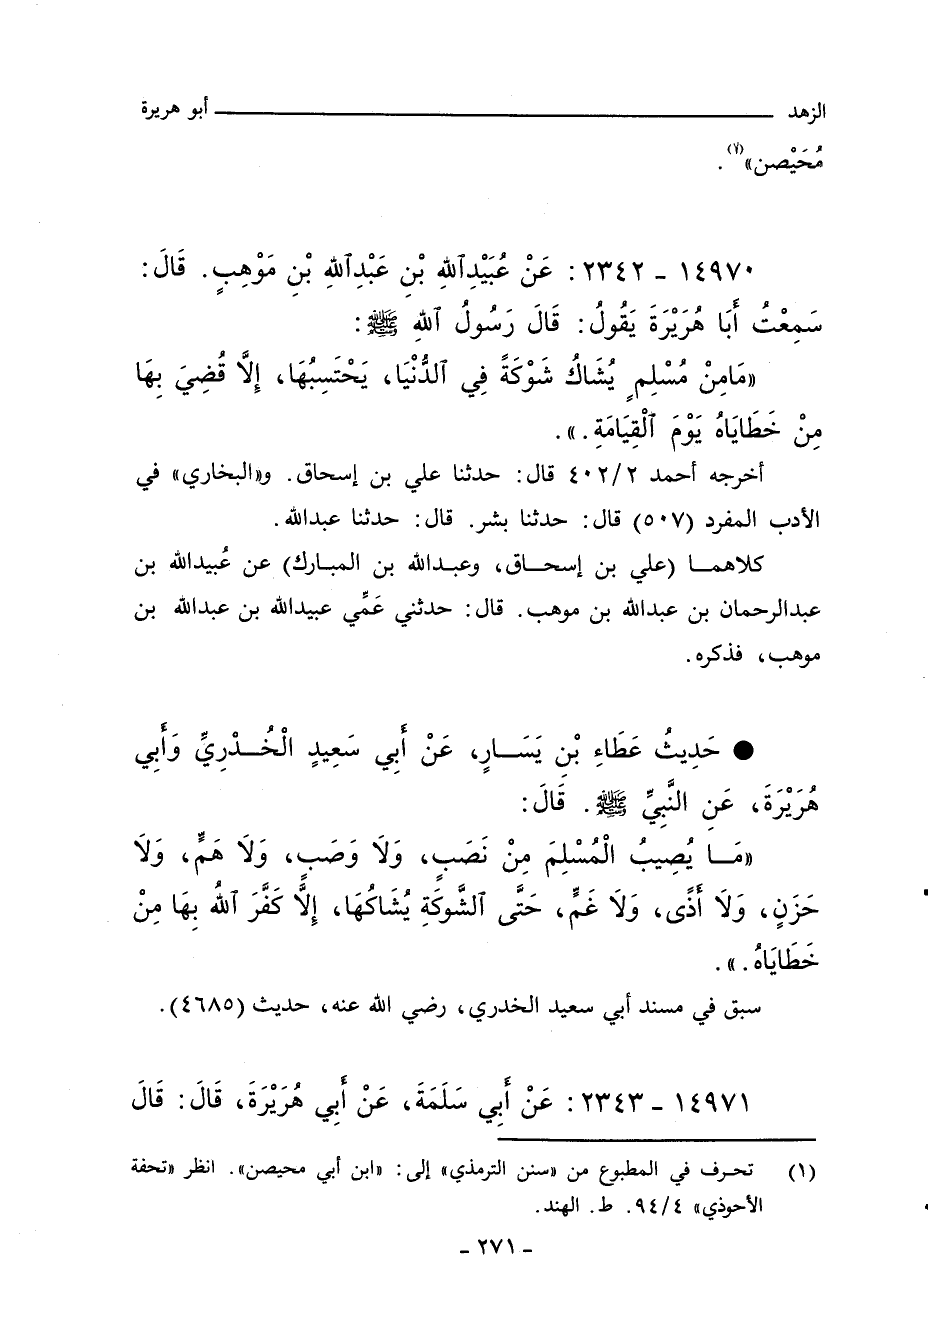 الزهد ــــــــــــــــــــ أبو هريرة
مُحَيْصن»(١) .
١٤٩٧٠ ـ ٢٣٤٢ : عَنْ عُبَيْدِٱللهِ بْنِ عَبْدِٱللهِ بْنِ مَوْهِبٍ . قَالَ :
سَمِعْتُ أَبَا هُرَيْرَةَ يَقُولُ : قَالَ رَسُولُ ٱللهِ ﷺ :
«مَامِنْ مُسْلِمٍ يُشَاكُ شَوْكَةً فِي ٱلدُّنْيَا، يَحْتَسِبُهَا، إِلَّا قُضِيَ بِهَا
مِنْ خَطَايَاهُ يَوْمَ ٱلْقِيَامَةِ . » .
أخرجه أحمد ٤٠٢/٢ قال : حدثنا علي بن إسحاق . و«البخاري» في
الأدب المفرد (٥٠٧) قال : حدثنا بشر . قال : حدثنا عبدالله .
كلاهما (علي بن إسحاق، وعبدالله بن المبارك) عن عُبيدالله بن
عبدالرحمان بن عبدالله بن موهب . قال : حدثني عَمِّي عبيدالله بن عبدالله بن
موهب، فذكره .
● حَدِيثُ عَطَاءِ بْنِ يَسَارٍ، عَنْ أَبِي سَعِيدٍ الْخُدْرِيِّ وَأَبِي
هُرَيْرَةَ، عَنِ النَّبِيِّ ﷺ . قَالَ :
«مَا يُصِيبُ الْمُسْلِمَ مِنْ نَصَبٍ، وَلَا وَصَبٍ، وَلَا هَمٍّ، وَلَا
حَزَنٍ، وَلَا أَذًى، وَلَا غَمٍّ، حَتَّى ٱلشَّوْكَةِ يُشَاكُهَا، إِلَّا كَفَّرَ ٱللهُ بِهَا مِنْ
خَطَايَاهُ . » .
سبق في مسند أبي سعيد الخدري، رضي الله عنه، حديث (٤٦٨٥) .
١٤٩٧١ ـ ٢٣٤٣ : عَنْ أَبِي سَلَمَةَ، عَنْ أَبِي هُرَيْرَةَ، قَالَ : قَالَ
(١) تحرف في المطبوع من «سنن الترمذي» إلى : «ابن أبي محيصن» . انظر «تحفة
الأحوذي» ٩٤/٤ . ط . الهند .
ـ ٢٧١ ـ